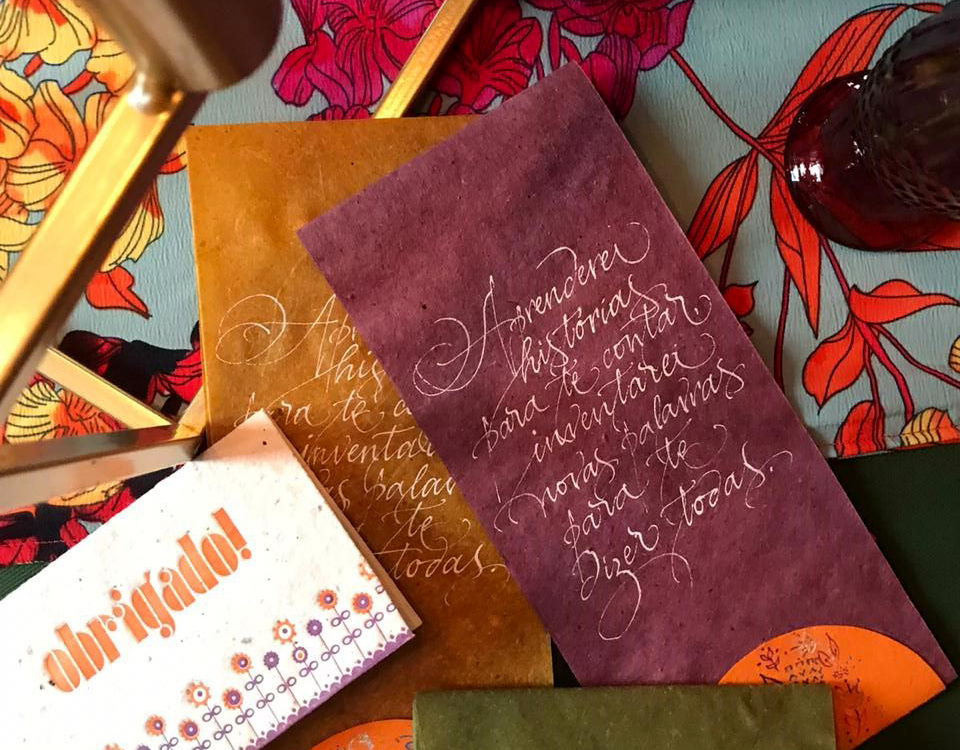 Aprenderei
histórias
para te contar,
inventarei
novas palavras
para te
Dizer todas.
para te
inventa
te
todas.
obrigado!